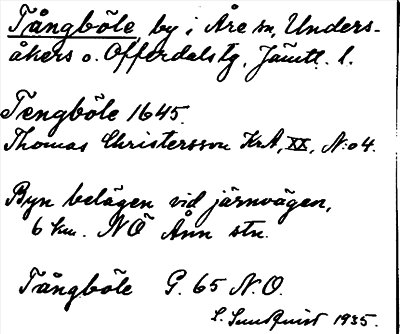 Tångböle by i Åre sn, Unders-
åkers o. Offerdals tg, Jämtl. l.
Tengböle 1645.
Thomas Christersson KrA, XX, N:o 4.
Byn belägen vid järnvägen,
6 km. NÖ Ånn stn.
Tångböle G. 65 N.O.
L. Sundquist 1935.